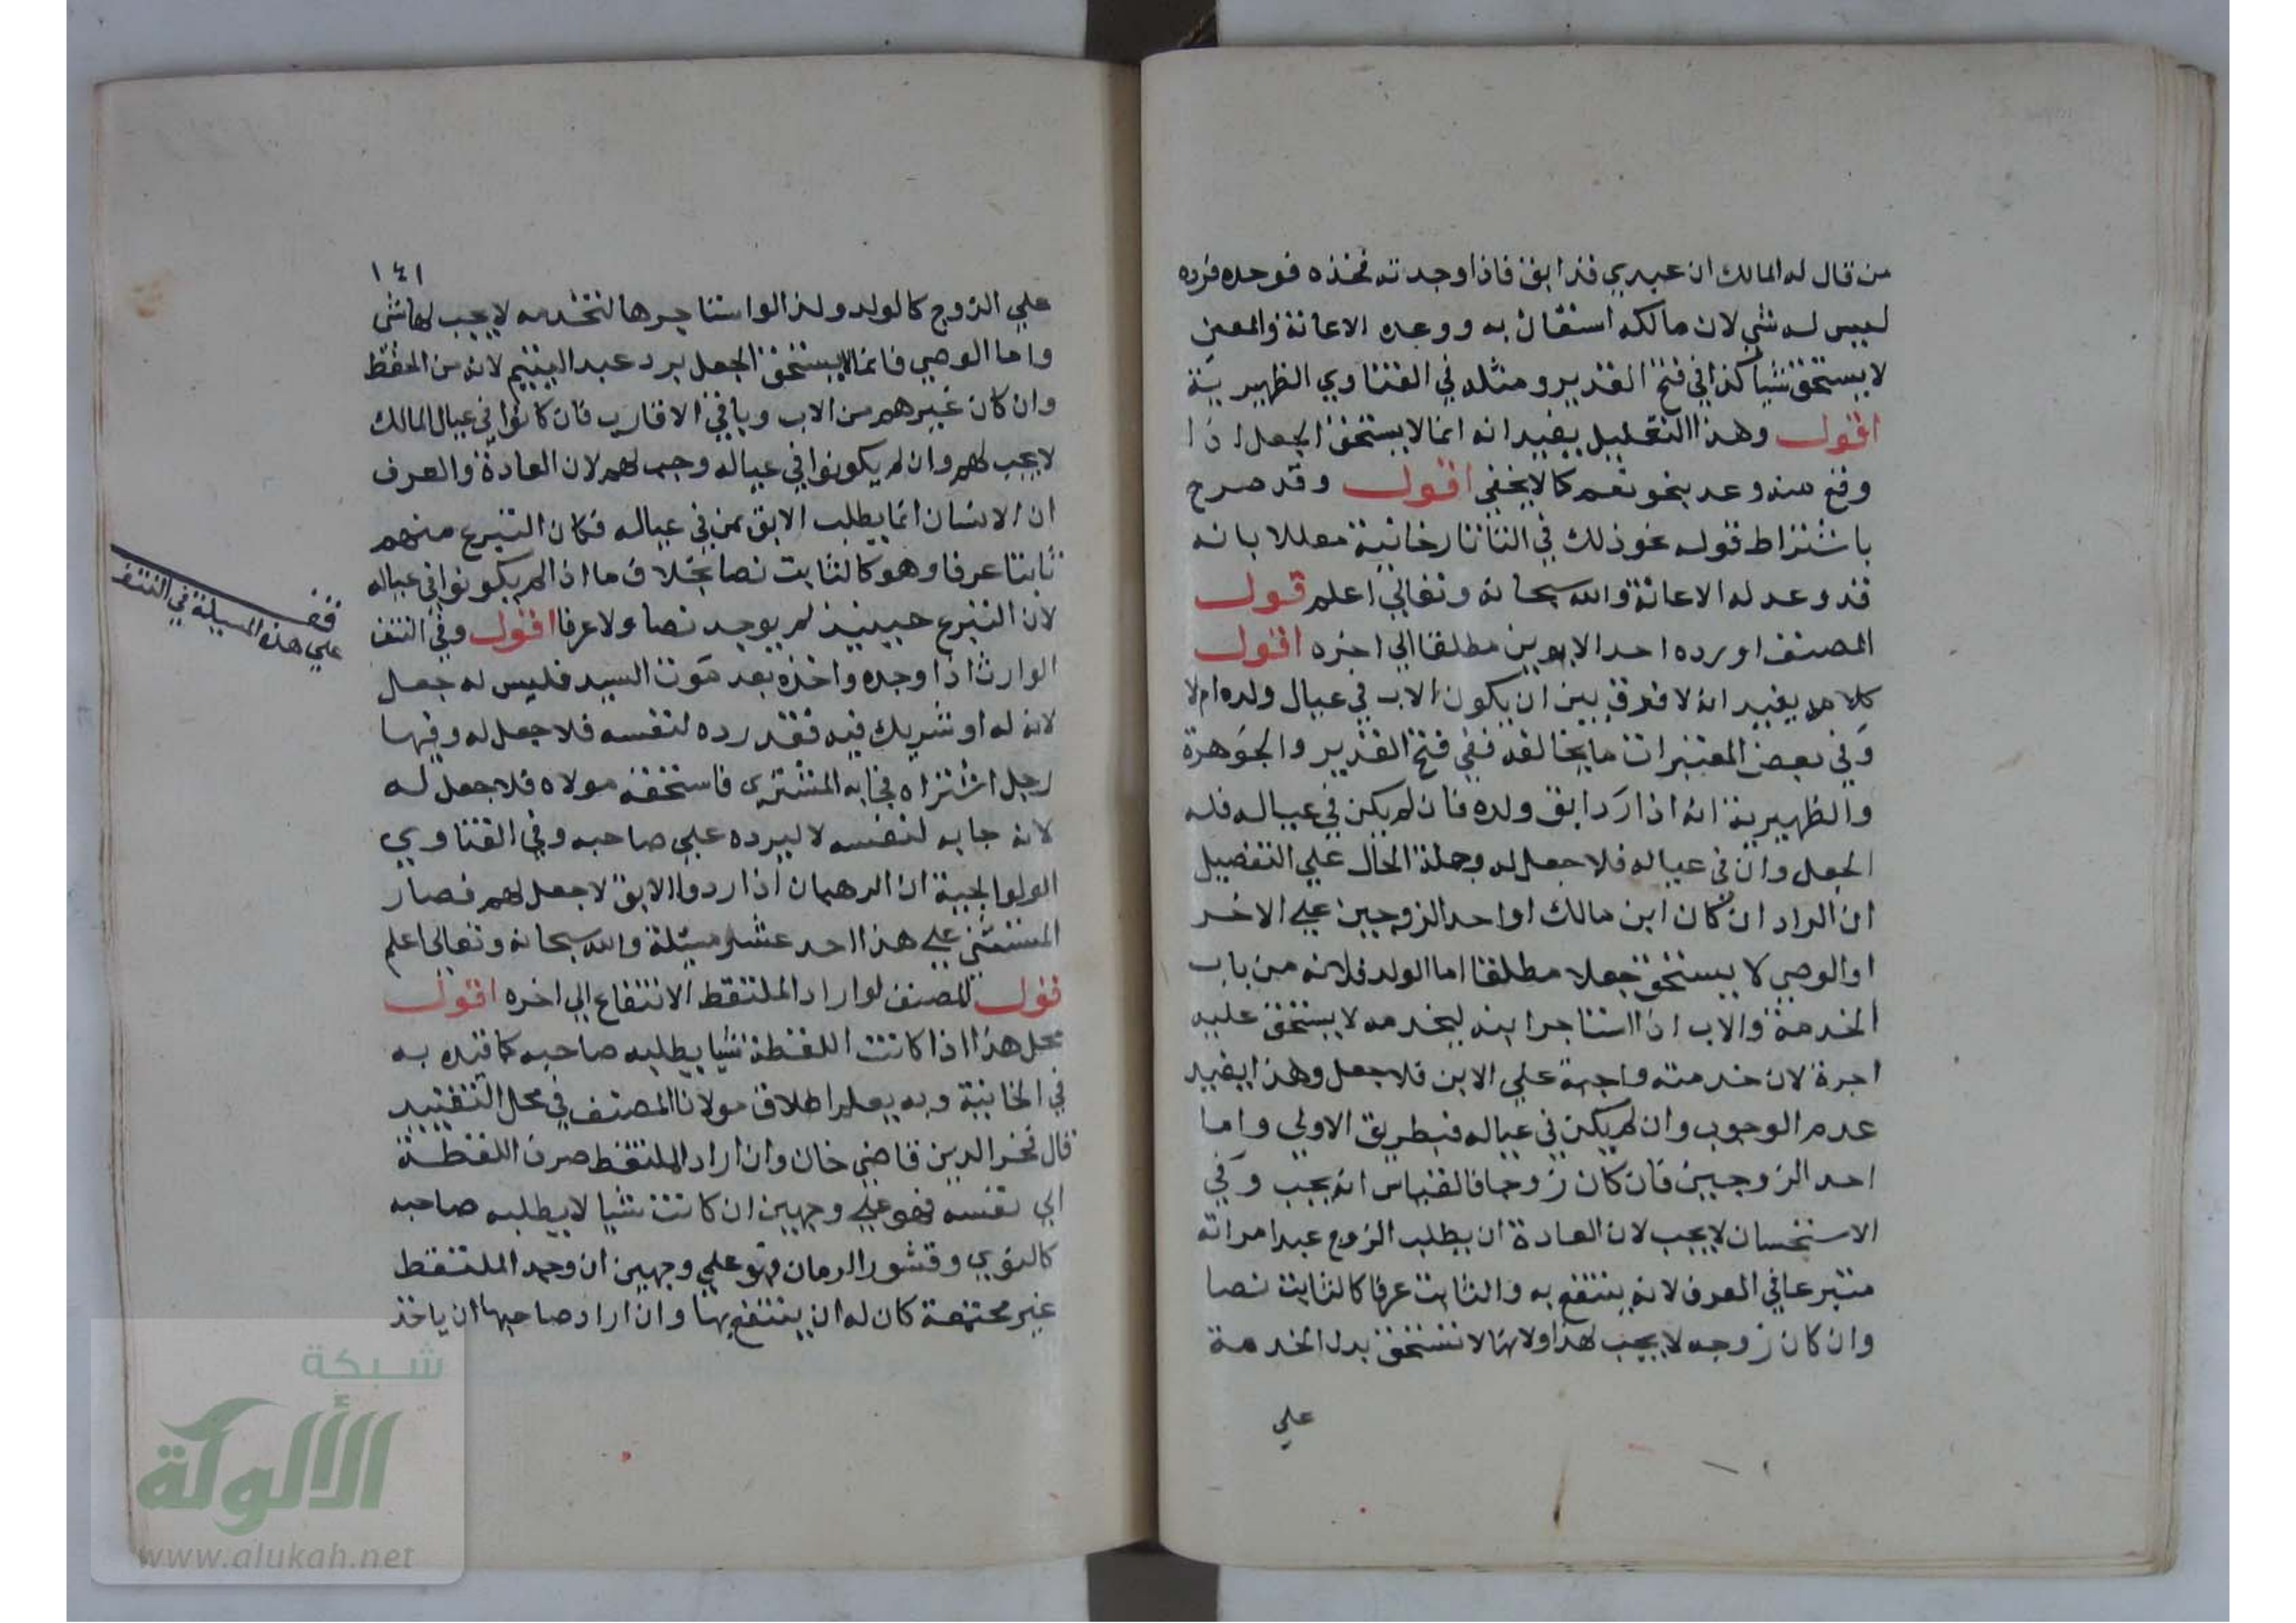 من قال له المالك ان عبدي قد ابق فاذا وجدته فخذه فوجده فرده
ليس له شي لان مالكه استعان به ووعده الاعانة والمعين
لا يستحق شيا كذا في فتح القدير ومثله في الفتاوي الظهيرية
اقول وهذا التعليل يفيد انه انما لا يستحق الجعل اذا
وقع منه وعد بنحو نعم كما لا يخفي اقول وقد صرح
باشتراط قوله نحو ذلك في التاتارخانية معللا بانه
قد وعد له الاعانة والله سبحانه وتعالي اعلم قول
المصنف او رده احد الابوين مطلقا الي اخره اقول
كلامه يفيد انه لا فرق بين ان يكون الاب في عيال ولده ام لا
وفي بعض المعتبرات ما يخالفه ففي فتح القدير والجوهرة
والظهيرية انه اذا رد ابق ولده فان لم يكن في عياله فله
الجعل وان في عياله فلا جعل له وجملة الحال علي التفصيل
ان الراد ان كان ابن مالك او احد الزوجين علي الاخر
او الوصي لا يستحق جعلا مطلقا اما الولد فلانه من باب
الخدمة والاب اذا استاجر ابنه ليخدمه لا يستحق عليه
اجرة لان خدمته واجبة علي الابن فلا جعل وهذا يفيد
عدم الوجوب وان لم يكن في عياله فبطريق الاولي واما
احد الزوجين فان كان زوجا فالقياس انه يجب وفي
الاستحسان لا يجب لان العادة ان يطلب الزوج عبد امراته
متبرعا في العرف لانه ينتفع به والثابت عرفا كالثابت نصا
وان كان زوجه لا يجب لهذا ولانها لا تستحق بدل الخدمة
علي
١٤١
علي الزوج كالولد ولذا لو استاجرها لتخدمه لا يجب لها شي
واما الوصي فانما لا يستحق الجعل برد عبد اليتيم لانه من الحفظ
وان كان غيرهم من الاب وباقي الاقارب فان كانوا في عيال المالك
لا يجب لهم وان لم يكونوا في عياله وجب لهم لان العادة والعرف
ان الانسان انما يطلب الابق بمن في عياله فكان التبرع منهم
ثابتا عرفا وهو كالثابت نصا بخلاف ما اذا لم يكونوا في عياله
لان التبرع حينيذ لم يوجد نصا ولا عرفا اقول وفي النتف
الوارث اذا وجده واخذه بعد موت السيد فليس له جعل
لانه له او شريك فيه فقد رده لنفسه فلا جعل له وفيها
رجل اشتراه فجا به المشتري فاستحقه مولاه فلا جعل له
لانه جا به لنفسه لا ليرده علي صاحبه وفي الفتاوي
الولوالجية ان الرهبان اذا ردوا الابق لا جعل لهم فصار
المستثني علي هذا احد عشر مسيلة والله سبحانه وتعالي اعلم
قول المصنف لو اراد الملتقط الانتفاع الي اخره اقول
محل هذا اذا كانت اللقطة شيا يطلبه صاحبه كما قيده به
في الخانية وبه يعلم اطلاق مولانا المصنف في محل التقييد
قال فخر الدين قاضي خان وان اراد الملتقط صرف اللقطة
الي نفسه فهو علي وجهين ان كانت شيا لا يطلبه صاحبه
كالنوي وقشور الرمان فهو علي وجهين ان وجد الملتقط
غير مجتمعة كان له ان ينتفع بها وان اراد صاحبها ان ياخذ
قف
علي هذه المسيلة في النتف
شبكة
الألوكة
www.alukah.net